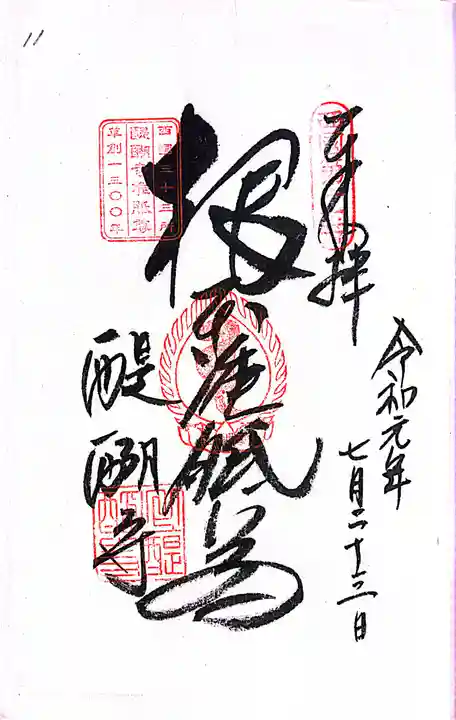 11
奉拝
令和元年
七月二十三日
根本准胝尊
西國三十三所
醍醐寺准胝尊
草創一三〇〇年
醍醐寺